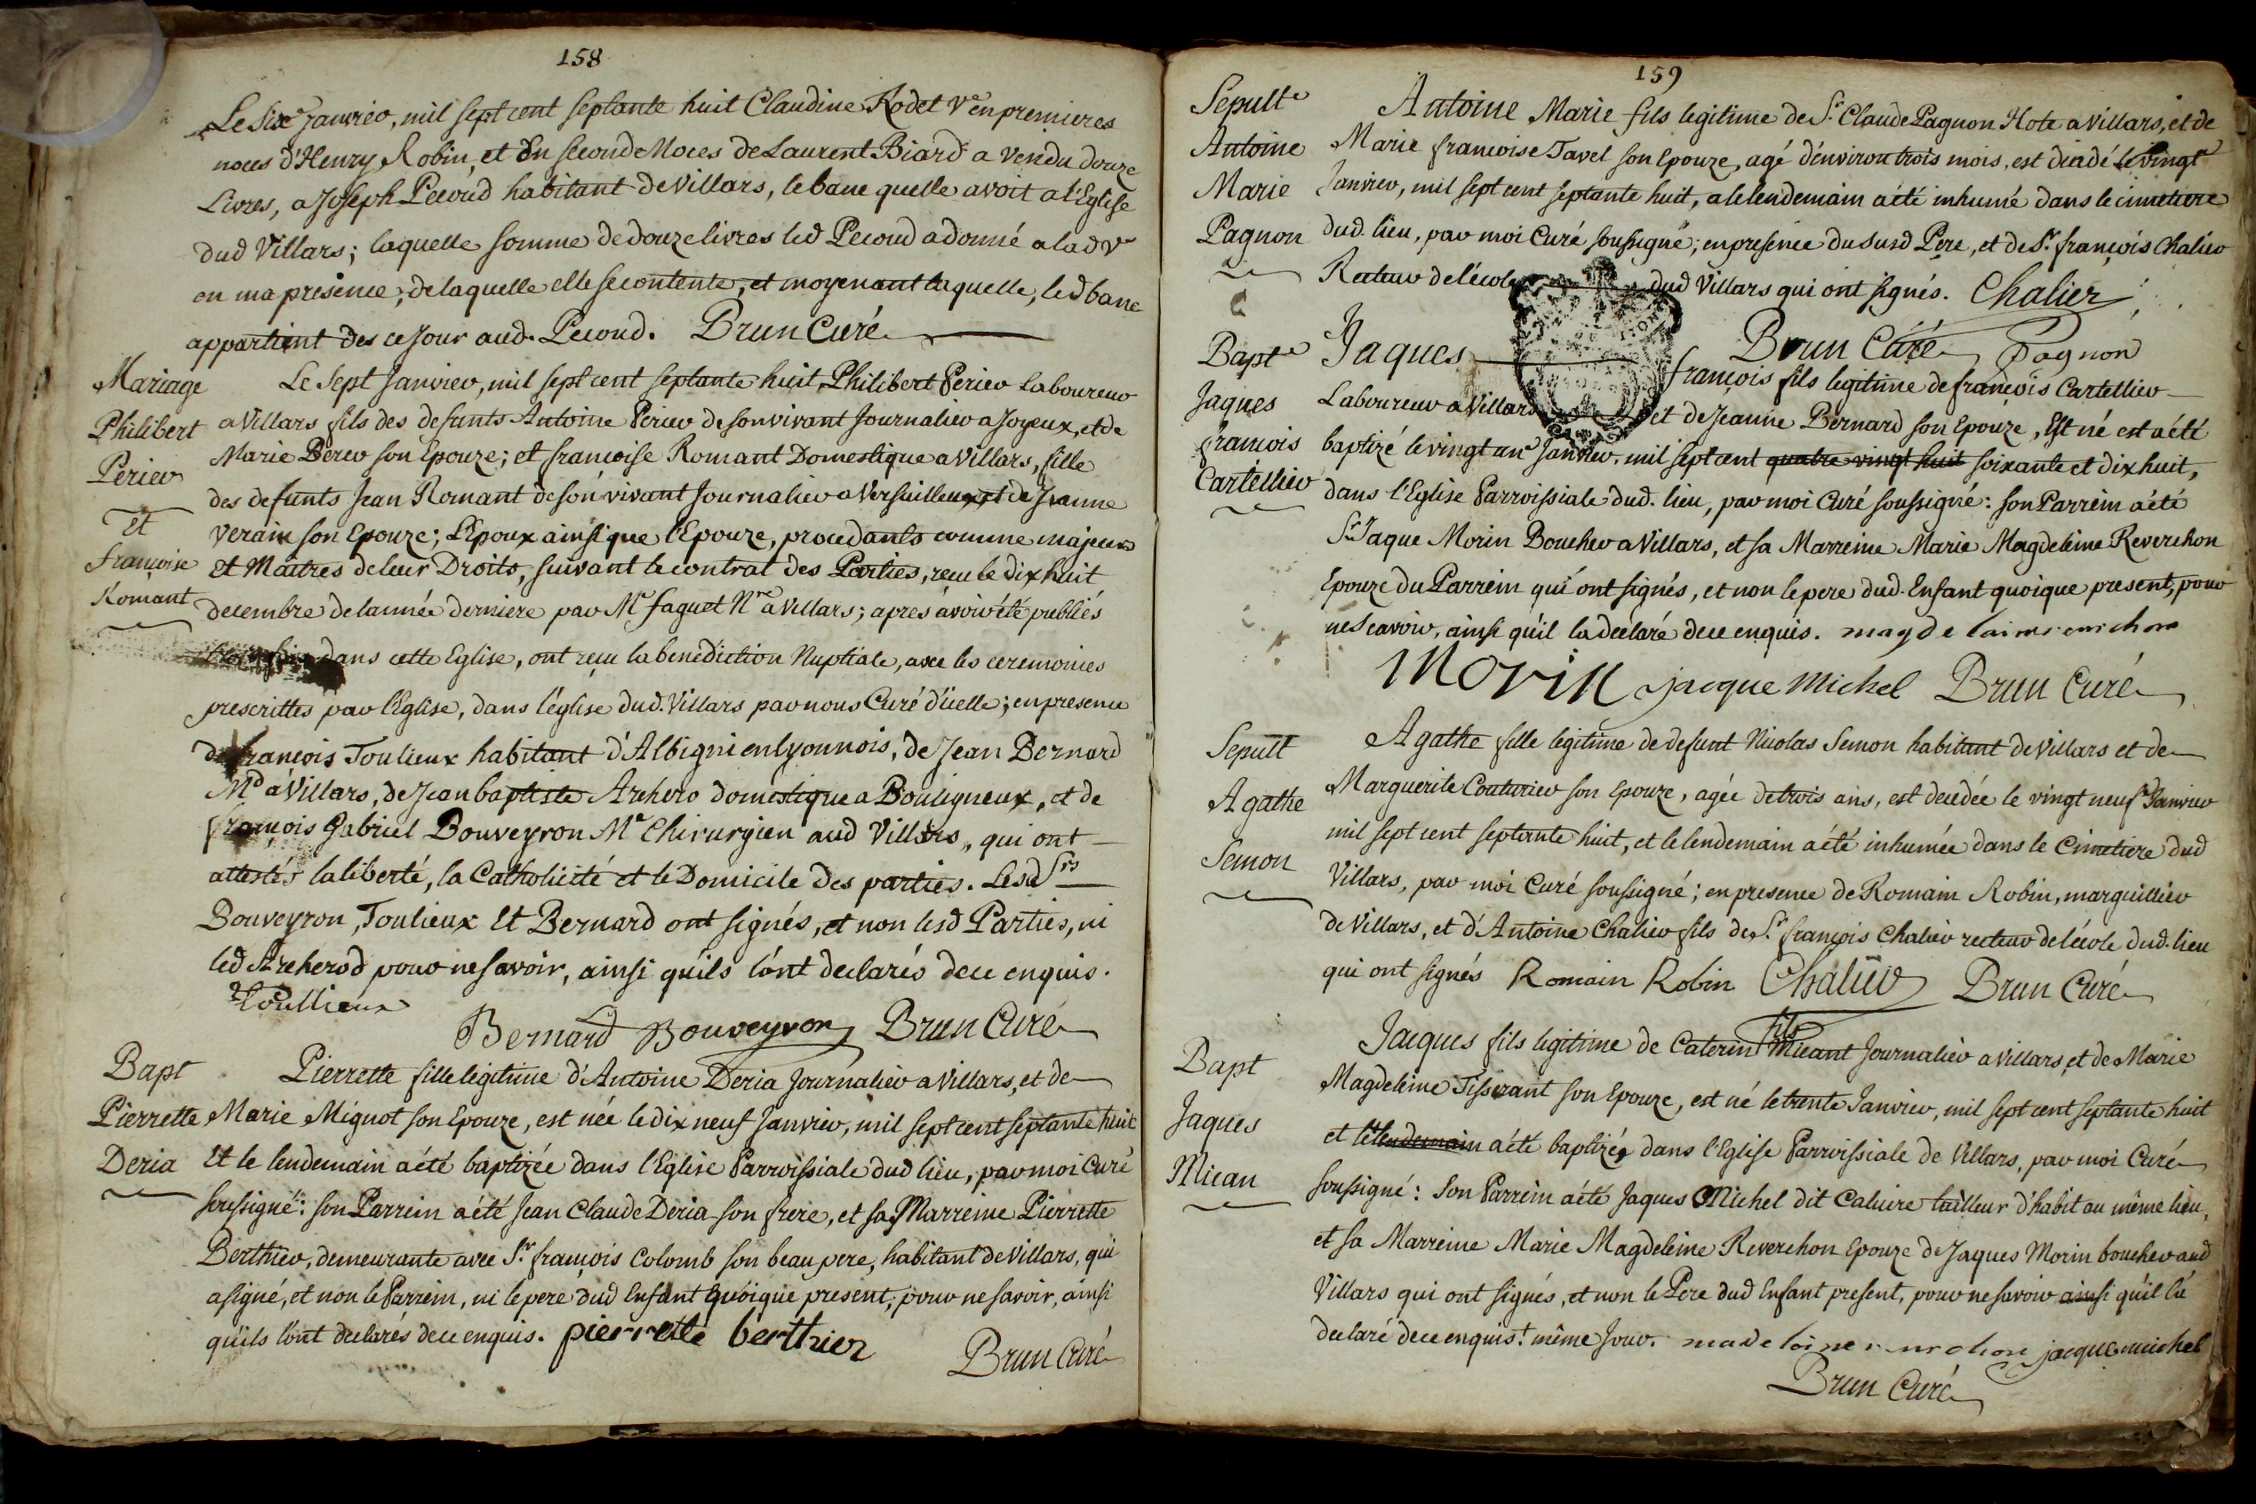 158
Le Six Janvier, mil sept cent septante huit Claudine Rodet Ve en premieres
noces d'Henry Robin, et En seconde Noces de Laurent Biard a vendu douze
Livres, a Joseph Pecoud habitant de Villars, le banc quelle avoit a l'Eglise
dud Villars; laquelle somme de douze livres led Pecoud a donné a lad Ve
en ma presence, de laquelle elle se contente, et moyenant laquelle, led banc
appartient des ce Jour aud. Pecoud. Brun Curé
Mariage
Philibert
Perier
Et
francoise
Romant
Le Sept Janvier, mil sept cent septante huit, Philibert Perier Laboureur
a Villars fils des defunts Antoine Perier de son vivant Journalier a Joyeux, et de
Marie Berer son Epouze; et francoise Romant Domestique a Villars, fille
des defunts Jean Romant de son vivant Journalier a Versailleux et de Jeanne
Verain son Epouze; L'Epoux ainsi que l'Epouze, procedants comme majeurs
et Maitres de leur Droits, suivant le contrat des Parties, recu le dix huit
decembre de lannée derniere par Me faguet Nre a Villars; apres avoir été publiés
dans cette Eglise, ont reçu la benediction Nuptiale, avec les ceremonies
prescrittes par l'Eglise, dans l'église dud. Villars par nous Curé d'icelle; en presence
de francois Toulieux habitant d'Albigni en lyonnois, de Jean Bernard
Md a Villars, de Jean baptiste Archero domestique a Bouligneux, et de
françois Gabriel Bouveyron Me Chirurgien aud Villars, qui ont
attestés la liberté, la Catholicité et le Domicile des parties. Lesd Srs
Bouveyron, Toulieux Et Bernard ont signés, et non lesd Parties, ni
led Archerod pour ne savoir, ainsi qu'ils l'ont declarés de ce enquis.
Toullieux
Bernard Bouveyron Brun Curé
Bapt
Pierrette
Deria
Pierrette fille legitime d'Antoine Deria Journalier a Villars, et de
Marie Mignot son Epouze, est née le dix neuf Janvier, mil sept cent septante huit
Et le lendemain a été baptizée dans l'Eglise Parroissiale dud lieu, par moi Curé
soussigné: son Parrein a été Jean Claude Deria son frere, et sa Marreine Pierrette
Berthier, demeurante avec Sr. françois Colomb son beau pere, habitant de Villars, qui
a signé, et non le Parrein, ni le pere dud Enfant quoique present, pour ne savoir, ainsi
qu'ils l'ont declarés de ce enquis. pierrette berthier
Brun Curé
159
Sepulte
Antoine
Marie
Pagnon
Antoine Marie fils legitime de Sr. Claude Pagnon Hote a Villars, et de
Marie francoise Tavel son Epouze, agé d'environ trois mois, est décédé le vingt
Janvier, mil sept cent septante huit, a le lendemain a été inhumé dans le cimetiere
dud. lieu, par moi Curé soussigné; en presence du susd Pere, et de Sr. françois Chalier
Recteur de l'école dud Villars qui ont signés. Chalier
Brun Curé Pagnon
Bapte
Jaques
francois
Cartellier
Jaques françois fils legitime de françois Cartellier
Laboureur a Villars et de Jeanne Bernard son Epouze, Est né est a été
baptizé le vingt un Janvier, mil sept cent quatre vingt huit soixante et dix huit,
dans l'Eglise Parroissiale dud. lieu, par moi Curé soussigné: son Parrein a été
Sr Jaque Morin Boucher a Villars, et sa Marreine Marie Magdeleine Reverchon
Epouze du Parrein qui ont signés, et non le pere dud. Enfant quoique present, pour
ne Scavoir, ainsi qu'il la declaré de ce enquis.
Morin jacque michel Brun Curé
Sepult
Agathe
Semon
Agathe fille legitime de defunt Nicolas Semon habitant de Villars et de
Marguerite Couturier son Epouze, agée de trois ans, est decédée le vingt neuf Janvier
mil sept cent septante huit, et le lendemain a été inhumée dans le Cimetiere dud
Villars, par moi Curé soussigné; en presence de Romain Robin, marguillier
de Villars, et d'Antoine Chalier fils de Sr. françois Chalier recteur de l'école dud. lieu
qui ont signés Romain Robin Chalier fils Brun Curé
Bapt
Jaques
Mican
Jacques fils legitime de Caterin Micant Journalier a Villars et de Marie
Magdeleine Tisserant son Epouze, est né le trente Janvier, mil sept cent septante huit
et le lendemain a été baptizé dans l'Eglise Parroissiale de Villars, par moi Curé
soussigné: Son Parrein a été Jaques Michel dit Caluire tailleur d'habit au même lieu,
et sa Marreine Marie Magdeleine Reverchon Epouze de Jaques Morin boucher aud
Villars qui ont signés, et non le Pere dud Enfant present, pour ne savoir ainsi qu'il la
declaré de ce enquis. † même Jour. jacque michel
Brun Curé